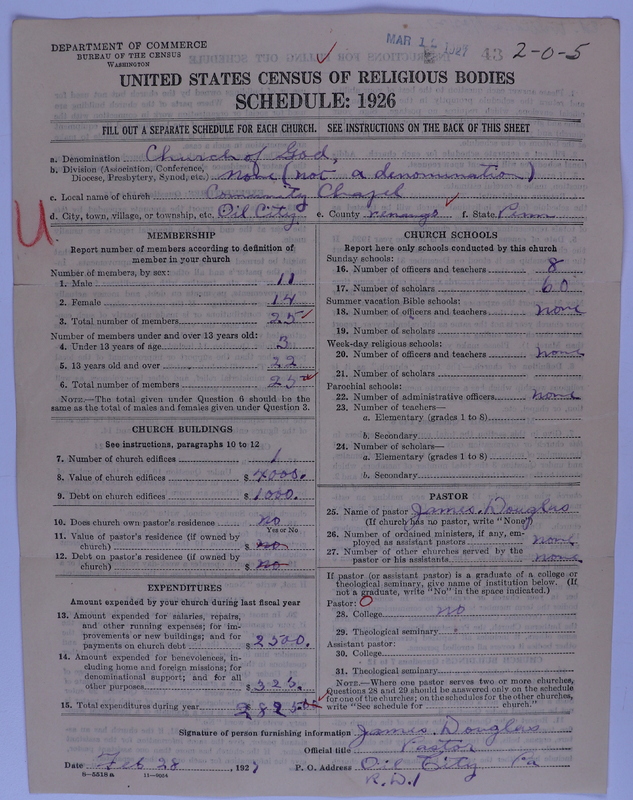 DEPARTMENT OF COMMERCE
BUREAU OF THE CENSUS
WASHINGTON
MAR 1 1927
43
2-0-5
UNITED STATES CENSUS OF RELIGIOUS BODIES
SCHEDULE: 1926
FILL OUT A SEPARATE SCHEDULE FOR EACH CHURCH. SEE INSTRUCTIONS ON THE BACK OF THIS SHEET
a. Denomination Church of God,
b. Division (Association, Conference, Diocese, Presbytery, Synod, etc.) none (not a denomination)
c. Local name of church Community Chapel
d. City, town, village, or township, etc. Oil City e. County Venango f. State Penn
U
MEMBERSHIP
Report number of members according to definition of
member in your church
Number of members, by sex:
1. Male 11
2. Female 14
3. Total number of members 25
Number of members under and over 13 years old:
4. Under 13 years of age 3
5. 13 years old and over 22
6. Total number of members 25
NOTE.—The total given under Question 6 should be the
same as the total of males and females given under Question 3.
CHURCH BUILDINGS
See instructions, paragraphs 10 to 12
7. Number of church edifices 1
8. Value of church edifices $ 4000.
9. Debt on church edifices $ 1000.
10. Does church own pastor's residence no
Yes or No
11. Value of pastor's residence (if owned by
church) $ no
12. Debt on pastor's residence (if owned by
church) $ no
EXPENDITURES
Amount expended by your church during last fiscal year
13. Amount expended for salaries, repairs,
and other running expenses; for im-
provements or new buildings; and for
payments on church debt $ 2500.
14. Amount expended for benevolences, in-
cluding home and foreign missions; for
denominational support; and for all
other purposes $ 325.
15. Total expenditures during year $ 2825
CHURCH SCHOOLS
Report here only schools conducted by this church
Sunday schools:
16. Number of officers and teachers 8
17. Number of scholars 60
Summer vacation Bible schools:
18. Number of officers and teachers none
19. Number of scholars
Week-day religious schools:
20. Number of officers and teachers none
21. Number of scholars
Parochial schools:
22. Number of administrative officers none
23. Number of teachers—
a. Elementary (grades 1 to 8)
b. Secondary
24. Number of scholars—
a. Elementary (grades 1 to 8)
b. Secondary
PASTOR
25. Name of pastor James Douglas
(If church has no pastor, write "None")
26. Number of ordained ministers, if any, em-
ployed as assistant pastors none
27. Number of other churches served by the
pastor or his assistants none
If pastor (or assistant pastor) is a graduate of a college or
theological seminary, give name of institution below. (If
not a graduate, write "No" in the space indicated.)
Pastor: 0
28. College no
29. Theological seminary "
Assistant pastor:
30. College
31. Theological seminary
NOTE.—Where one pastor serves two or more churches,
Questions 28 and 29 should be answered only on the schedule
for one of the churches; on the schedules for the other churches,
write "See schedule for church."
Signature of person furnishing information James Douglas
Official title Pastor
Date Feb 28, 1927 P. O. Address Oil City Pa
R.D.1
8-5518a 11-9064